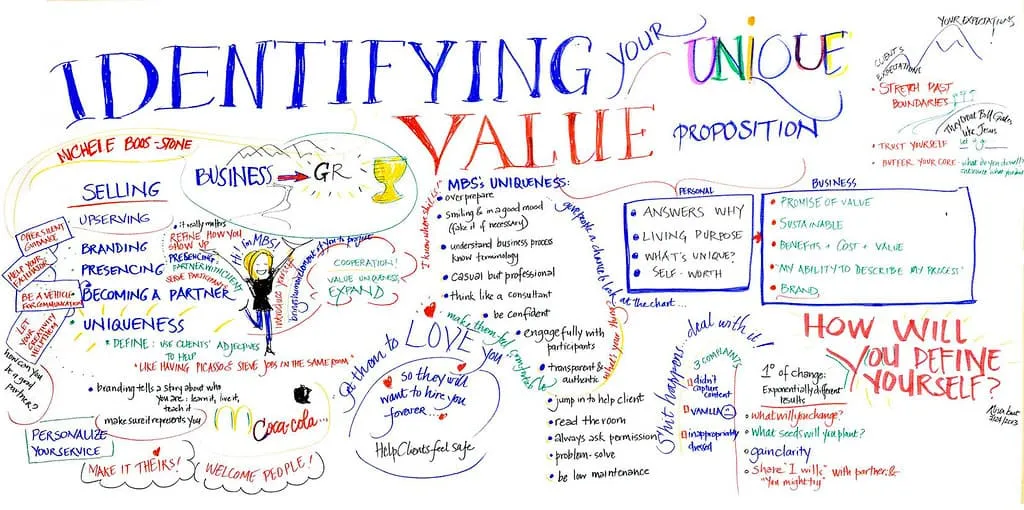 IDENTIFYING YOUR UNIQUE
VALUE PROPOSITION
MICHELE BOOS-STONE
BUSINESS → GR
SELLING
UPSERVING
BRANDING
PRESENCING
BECOMING A PARTNER
UNIQUENESS
* DEFINE: USE CLIENTS' ADJECTIVES
TO HELP
"LIKE HAVING PICASSO & STEVE JOBS IN THE SAME ROOM"
OFFER SILENT
GUIDANCE
HELP YOUR
FACILITATOR
BE A VEHICLE
FOR COMMUNICATION
LET
YOUR
CREATIVITY
HELP THEM
HOW CAN YOU
be a good
partner?
• it really matters
REFINE HOW YOU
SHOW UP
PRESENCING:
PARTNER WITH CLIENTS
SERVE PARTICIPANTS
Hi I'm MBS!
COOPERATION!
VALUE UNIQUENESS
EXPAND
• branding tells a story about who
you are: learn it, live it,
teach it
make sure it represents you
Coca-Cola...
PERSONALIZE
YOUR SERVICE
MAKE IT THEIRS!
WELCOME PEOPLE!
I know where shit is
MBS's UNIQUENESS:
• over prepare
• smiling & in a good mood
(fake it if necessary)
• understand business process
know terminology
• casual but professional
• think like a consultant
• be confident
• engage fully with
participants
• transparent &
authentic
• jump in to help client
• read the room
• always ask permission
• problem-solve
• be low maintenance
give people a chance to look
at the chart...
make them feel comfortable
Get them to LOVE you
so they will
want to hire you
forever...
Help Clients feel safe
PERSONAL
• ANSWERS WHY
• LIVING PURPOSE
• WHAT'S UNIQUE?
• SELF-WORTH
BUSINESS
• PROMISE OF VALUE
• SUSTAINABLE
• BENEFITS + COST + VALUE
• "MY ABILITY TO DESCRIBE MY PROCESS"
• BRAND
YOUR EXPECTATIONS
CLIENT'S
EXPECTATIONS
• STRETCH PAST
BOUNDARIES
They treat Bill Gates
like Jesus
let it go
• TRUST YOURSELF
• BUFFER YOUR CORE
Shit happens... deal with it!
3 COMPLAINTS
didn't
capture
content
VANILLA
inappropriately
dressed
1° of change:
Exponentially different
results
• what will you change?
• What seeds will you plant?
• gain clarity
• share "I wills" with partner &
"You might try"
HOW WILL
YOU DEFINE
YOURSELF?